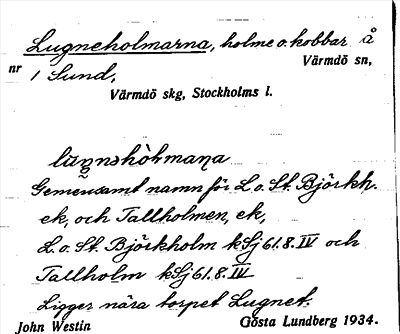 Lugneholmarna, holme o. kobbar å
nr 1 Sund, Värmdö sn,
Värmdö skg, Stockholms l.
Gemensamt namn för L. o. St. Björkh.
ek, och Tallholmen, ek,
L. o. St. Björkholm kSj 61.8. IV och
Tallholm kSj 61.8. IV
Ligger nära torpet Lugnet.
John Westin Gösta Lundberg 1934.